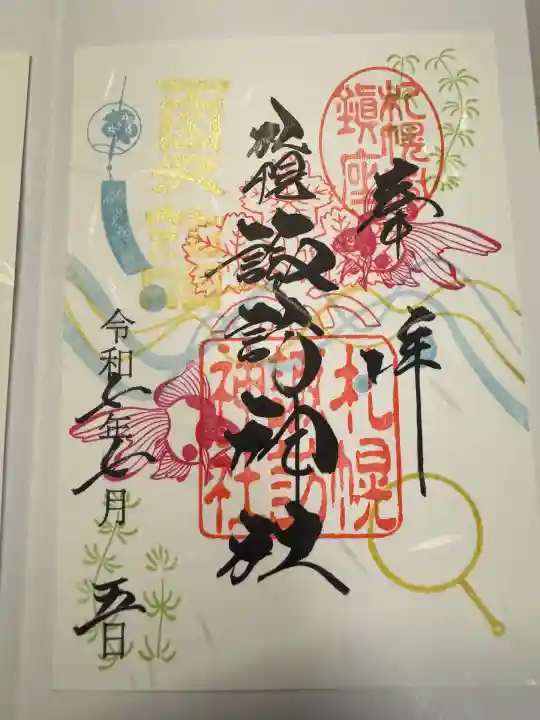 奉拝
札幌
鎮座
札幌
諏訪神社
札幌
諏訪
神社
令和七年七月
五日